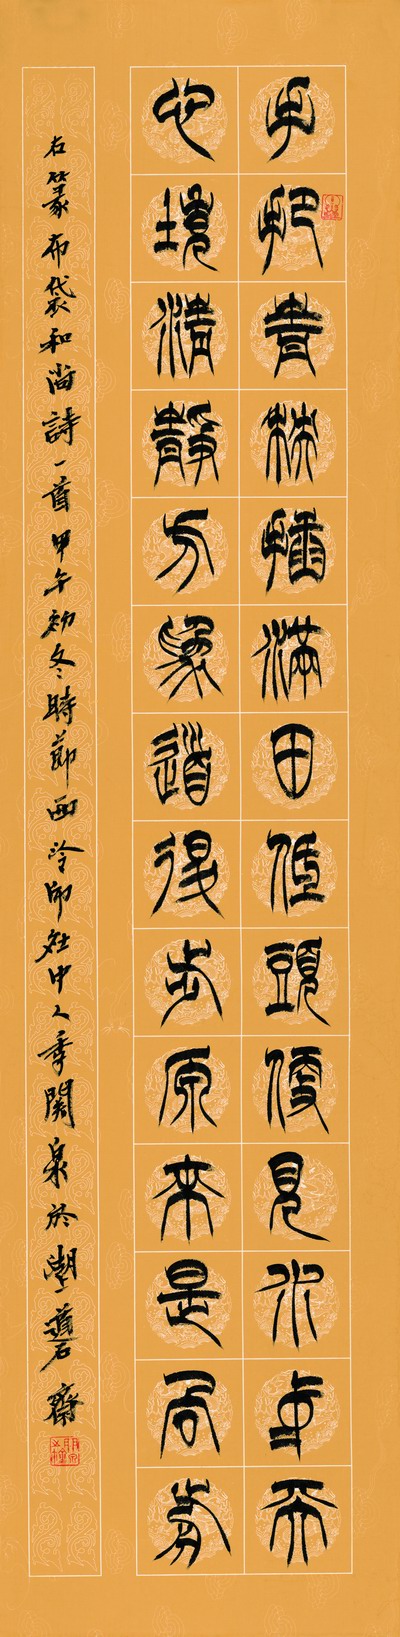 手把青秧插滿田低頭便見水中天
心境清靜方為道退步原來是向前
右篆布袋和尚詩一首甲午初冬時節西泠印社中人季關泉於石齋